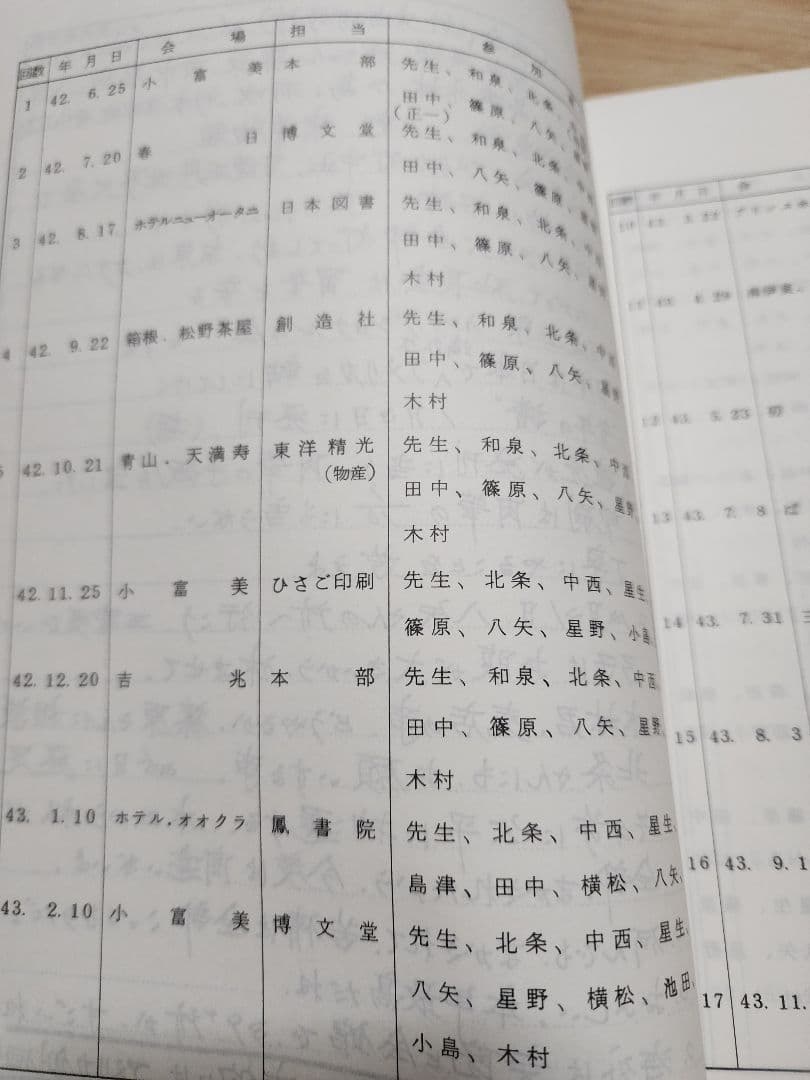 回数 年月日 会場 担当 参
1 42. 6.25 小富美 本部 先生、和泉、北条、
田中、篠原、八矢、
(正一)
2 42. 7.20 春日 博文堂 先生、和泉、北条、中
田中、八矢、篠原、
3 42. 8.17 ホテルニューオータニ 日本図書 先生、和泉、北条、中
田中、篠原、八矢、
木村
4 42. 9.22 箱根、松野茶屋 創造社 先生、和泉、北条、中
田中、篠原、八矢、
木村
42.10.21 青山．天満寿 東洋精光 先生、和泉、北条、中西
(物産)
田中、篠原、八矢、星野、
木村
42.11.25 小富美 ひさご印刷 先生、北条、中西、星生、
篠原、八矢、星野、小富
42.12.20 吉兆 本部 先生、和泉、北条、中西、
田中、篠原、八矢、星野、
木村
43. 1.10 ホテル．オオクラ 鳳書院 先生、北条、中西、星生、
島津、田中、横松、八矢、
43. 2.10 小富美 博文堂 先生、北条、中西、星生、
八矢、星野、横松、池田、
小島、木村
43. 5.23 初
13 43. 7. 8 ば
14 43. 7.31 三
15 43. 8. 3
16 43. 9.1
17 43.11.